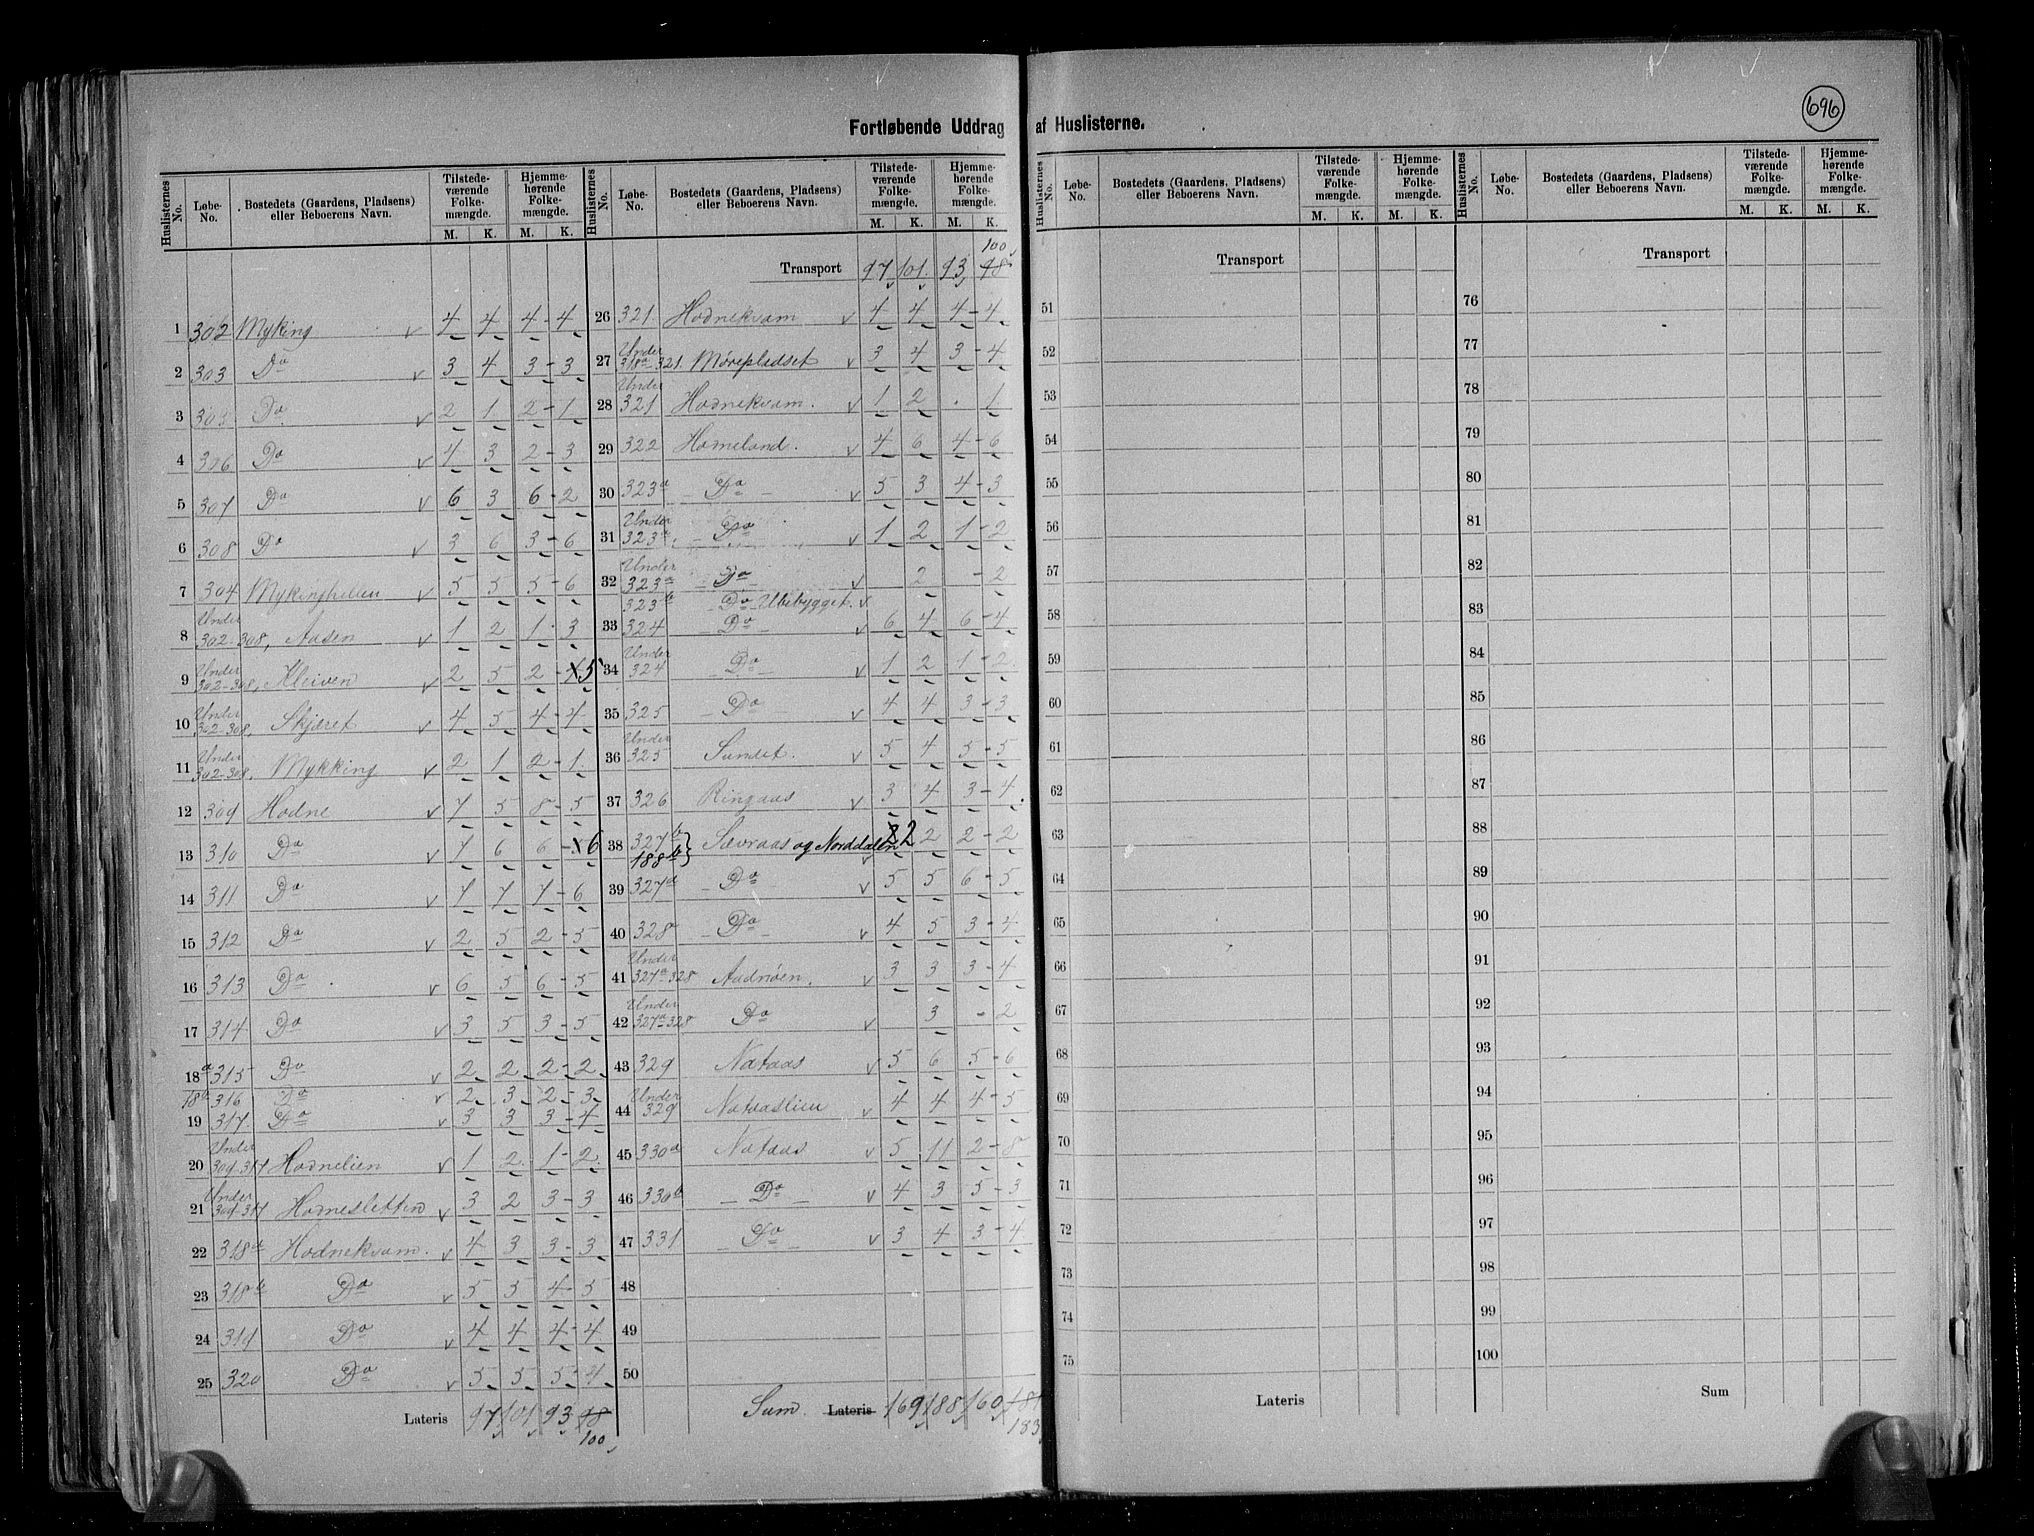 696
Fortløbende Uddrag af Huslisterne.
Huslisternes No. Løbe-No. Bostedets (Gaardens, Pladsens) eller Beboerens Navn. Tilstedeværende Folkemængde. M. K. Hjemmehørende Folkemængde. M. K.
1 302 Myking v 4 4 4 - 4
2 303 Do v 3 4 3 - 3
3 305 Do v 2 1 2 - 1
4 306 Do v 4 3 2 - 3
5 307 Do v 6 3 6 - 2
6 308 Do v 3 6 3 - 6
7 304 Mykinghelien v 5 5 5 - 6
8 Under 302-308, Aasen v 1 2 1 - 3
9 Under 302-308, Kleiven v 2 5 2 - 5
10 Under 302-308, Skjæret v 4 5 4 - 4
11 Under 302-308, Mykking v 2 1 2 - 1
12 309 Hodne v 7 5 8 - 5
13 310 Do v 7 6 6 - 6
14 311 Do v 7 7 7 - 6
15 312 Do v 2 5 2 - 5
16 313 Do v 6 5 6 - 5
17 314 Do v 3 5 3 - 5
18a 315 Do v 2 2 2 - 2
18b 316 Do v 2 3 2 - 3
19 317 Do v 3 3 3 - 4
20 Under 309-317 Hodnelien v 1 2 1 - 2
21 Under 309-317 Hodnesletten v 3 2 3 - 3
22 318a Hodnekvam v 4 3 3 - 3
23 318b Do v 5 5 4 - 5
24 319 Do v 4 4 4 - 4
25 320 Do v 5 5 5 - 4
Lateris 97 101 93 98
100
Huslisternes No. Løbe-No. Bostedets (Gaardens, Pladsens) eller Beboerens Navn. Tilstedeværende Folkemængde. M. K. Hjemmehørende Folkemængde. M. K.
100
Transport 97 101 93 98
26 321 Hodnekvam v 4 4 4 - 4
27 Under 318a-321. Mørepladset v 3 4 3 - 4
28 Under 321 Hodnekvam. v 1 2 . 1
29 322 Homeland. v 4 6 4 - 6
30 323a Do v 5 3 4 - 3
31 Under 323a Do v 1 2 1 - 2
32 Under 323a Do v 2 - 2
323b Do Ubebygget. v
33 324 Do v 6 4 6 - 4
34 Under 324 Do v 1 2 1 - 2
35 325 Do v 4 4 3 - 3
36 Under 325 Sundet. v 5 4 5 - 5
37 326 Ringaas v 3 4 3 - 4
38 327b 188b Sævraas og Norddalen v 2 2 2 - 2
39 327a Do v 5 5 6 - 5
40 328 Do v 4 5 3 - 4
41 Under 327a-328 Aadnøen. v 3 3 3 - 4
42 Under 327a-328 Do v 3 - 2
43 329 Nataas v 5 6 5 - 6
44 Under 329 Nataaslien v 4 4 4 - 5
45 330a Nataas v 5 11 2 - 8
46 330b Do v 4 3 5 - 3
47 331 Do v 3 4 3 - 4
48
49
50
Sum. Lateris 169 188 160 181
183
Huslisternes No. Løbe-No. Bostedets (Gaardens, Pladsens) eller Beboerens Navn. Tilstedeværende Folkemængde. M. K. Hjemmehørende Folkemængde. M. K.
Transport
51
52
53
54
55
56
57
58
59
60
61
62
63
64
65
66
67
68
69
70
71
72
73
74
75
Lateris
Huslisternes No. Løbe-No. Bostedets (Gaardens, Pladsens) eller Beboerens Navn. Tilstedeværende Folkemængde. M. K. Hjemmehørende Folkemængde. M. K.
Transport
76
77
78
79
80
81
82
83
84
85
86
87
88
89
90
91
92
93
94
95
96
97
98
99
100
Sum